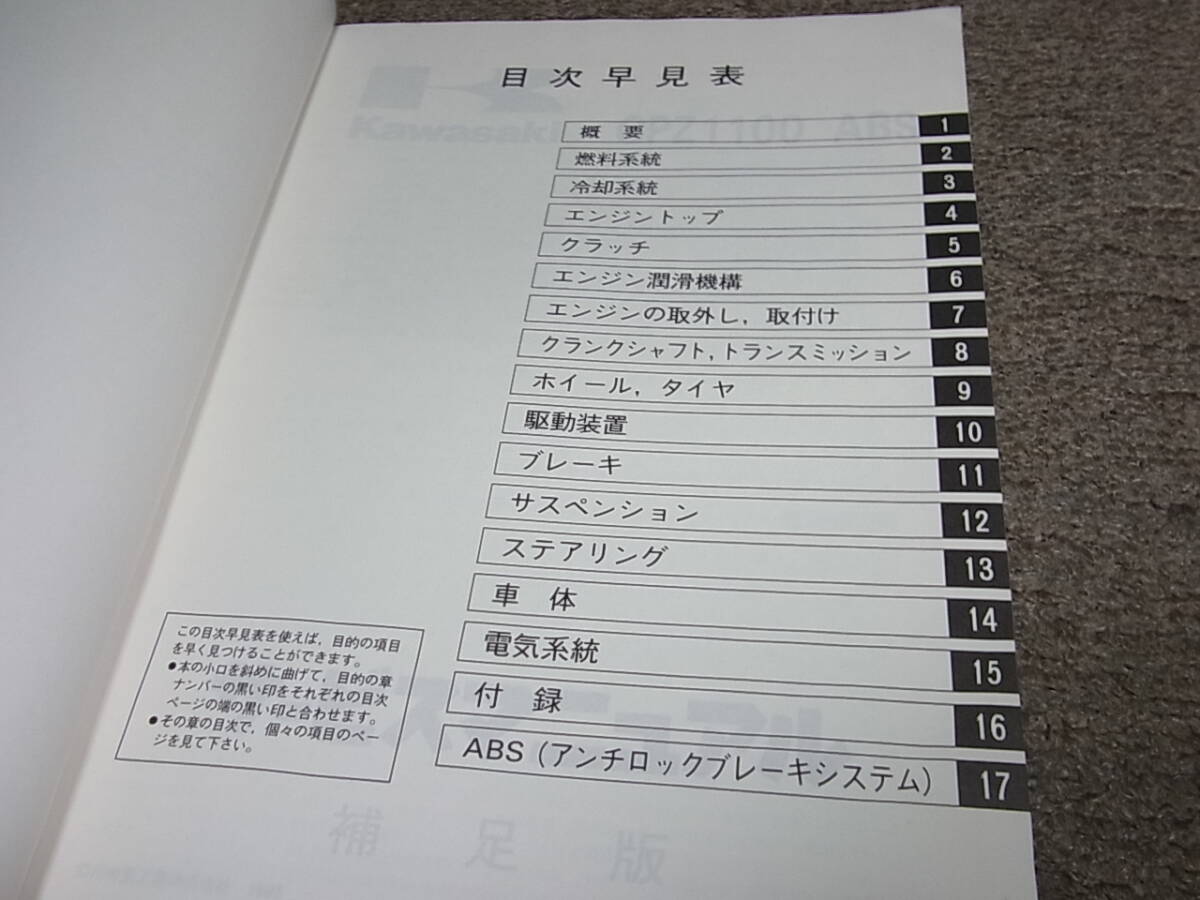 目次早見表
Kawasaki GPZ1100 ABS
概要 1
燃料系統 2
冷却系統 3
エンジントップ 4
クラッチ 5
エンジン潤滑機構 6
エンジンの取外し，取付け 7
クランクシャフト，トランスミッション 8
ホイール，タイヤ 9
駆動装置 10
ブレーキ 11
サスペンション 12
ステアリング 13
車体 14
電気系統 15
付録 16
ABS（アンチロックブレーキシステム） 17
この目次早見表を使えば，目的の項目
を早く見つけることができます。
●本の小口を斜めに曲げて，目的の章
ナンバーの黒い印をそれぞれの目次
ページの端の黒い印と合わせます。
●その章の目次で，個々の項目のペー
ジを見て下さい。
補足版